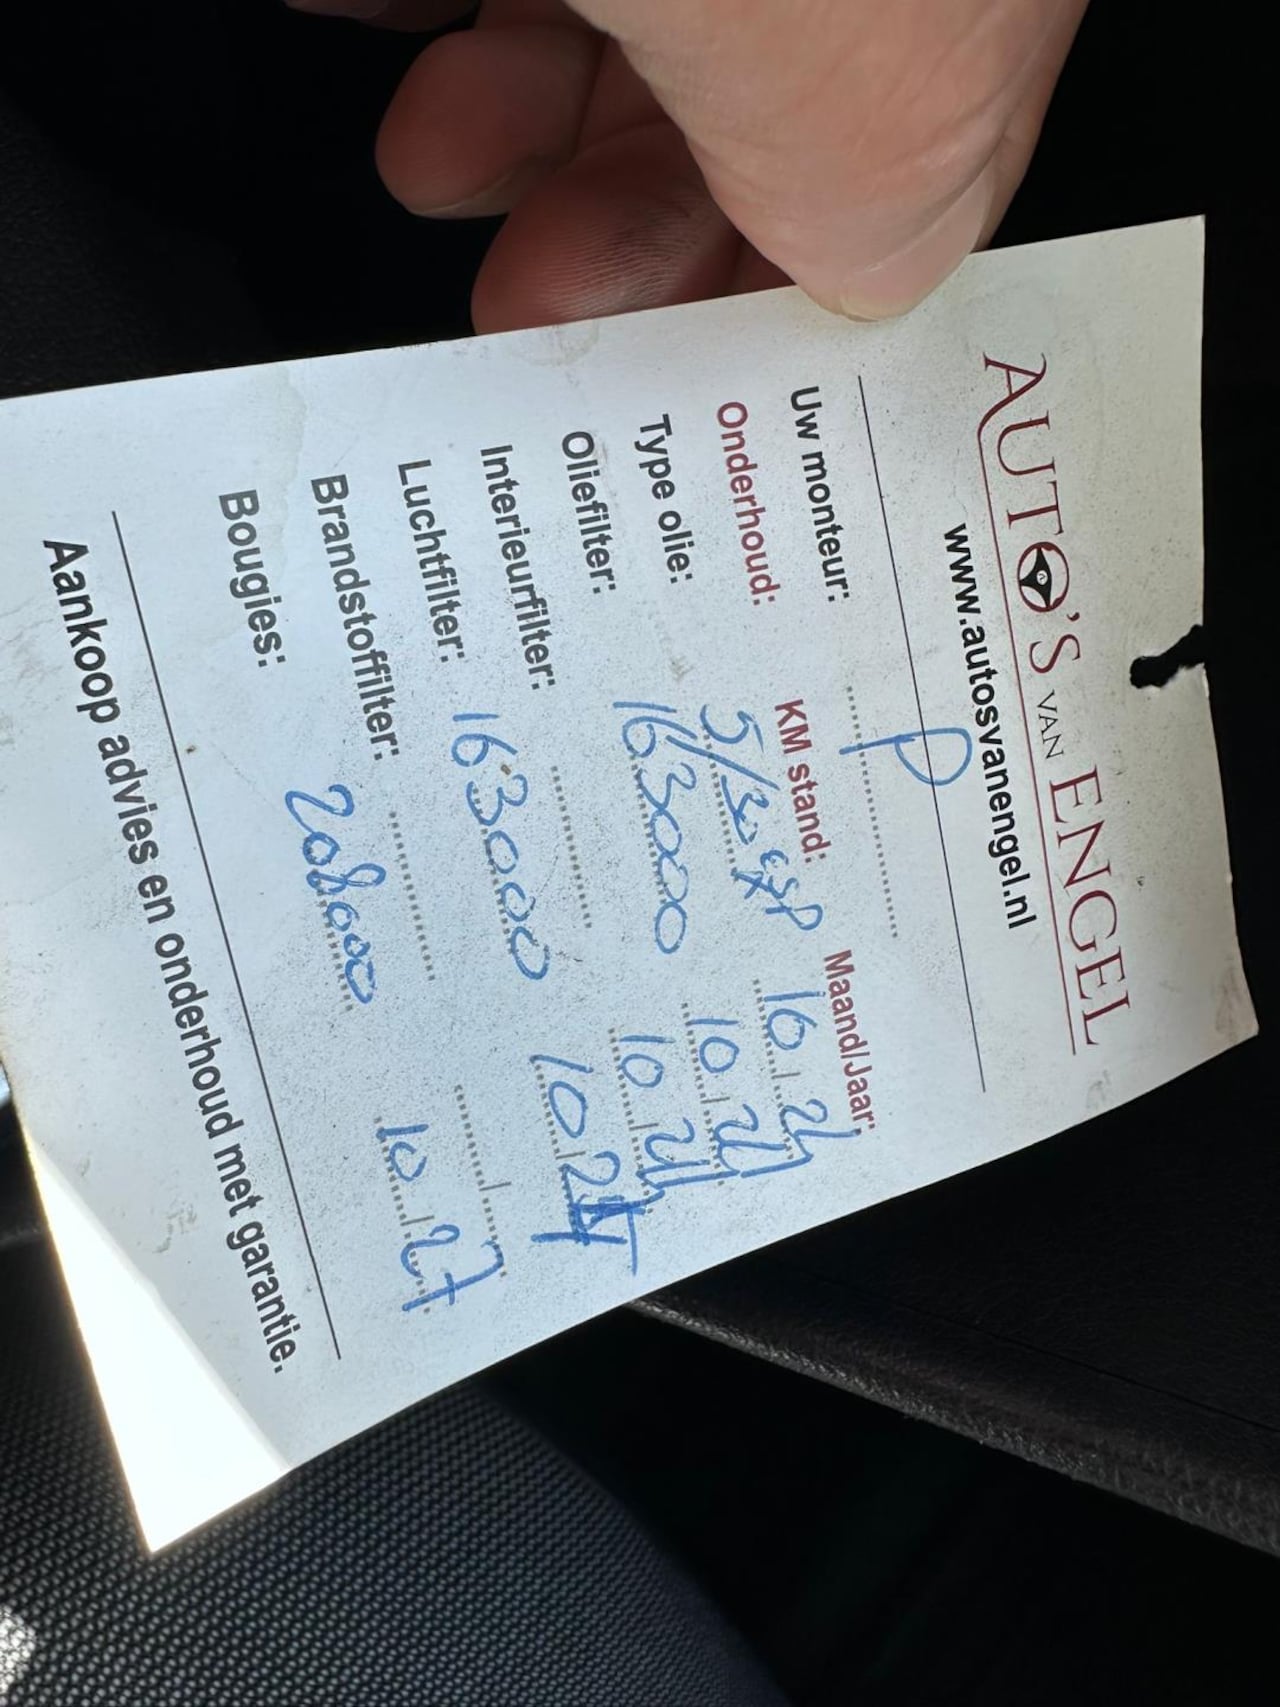 AUTO'S VAN ENGEL
www.autosvanengel.nl
Uw monteur: P
Onderhoud: KM stand: Maand/Jaar:
Type olie: 5/30 esp 10/24
Oliefilter: 163000 10/24
Interieurfilter: 10/24
Luchtfilter: 163000 10/24
Brandstoffilter: /
Bougies: 208000 10/27
Aankoop advies en onderhoud met garantie.